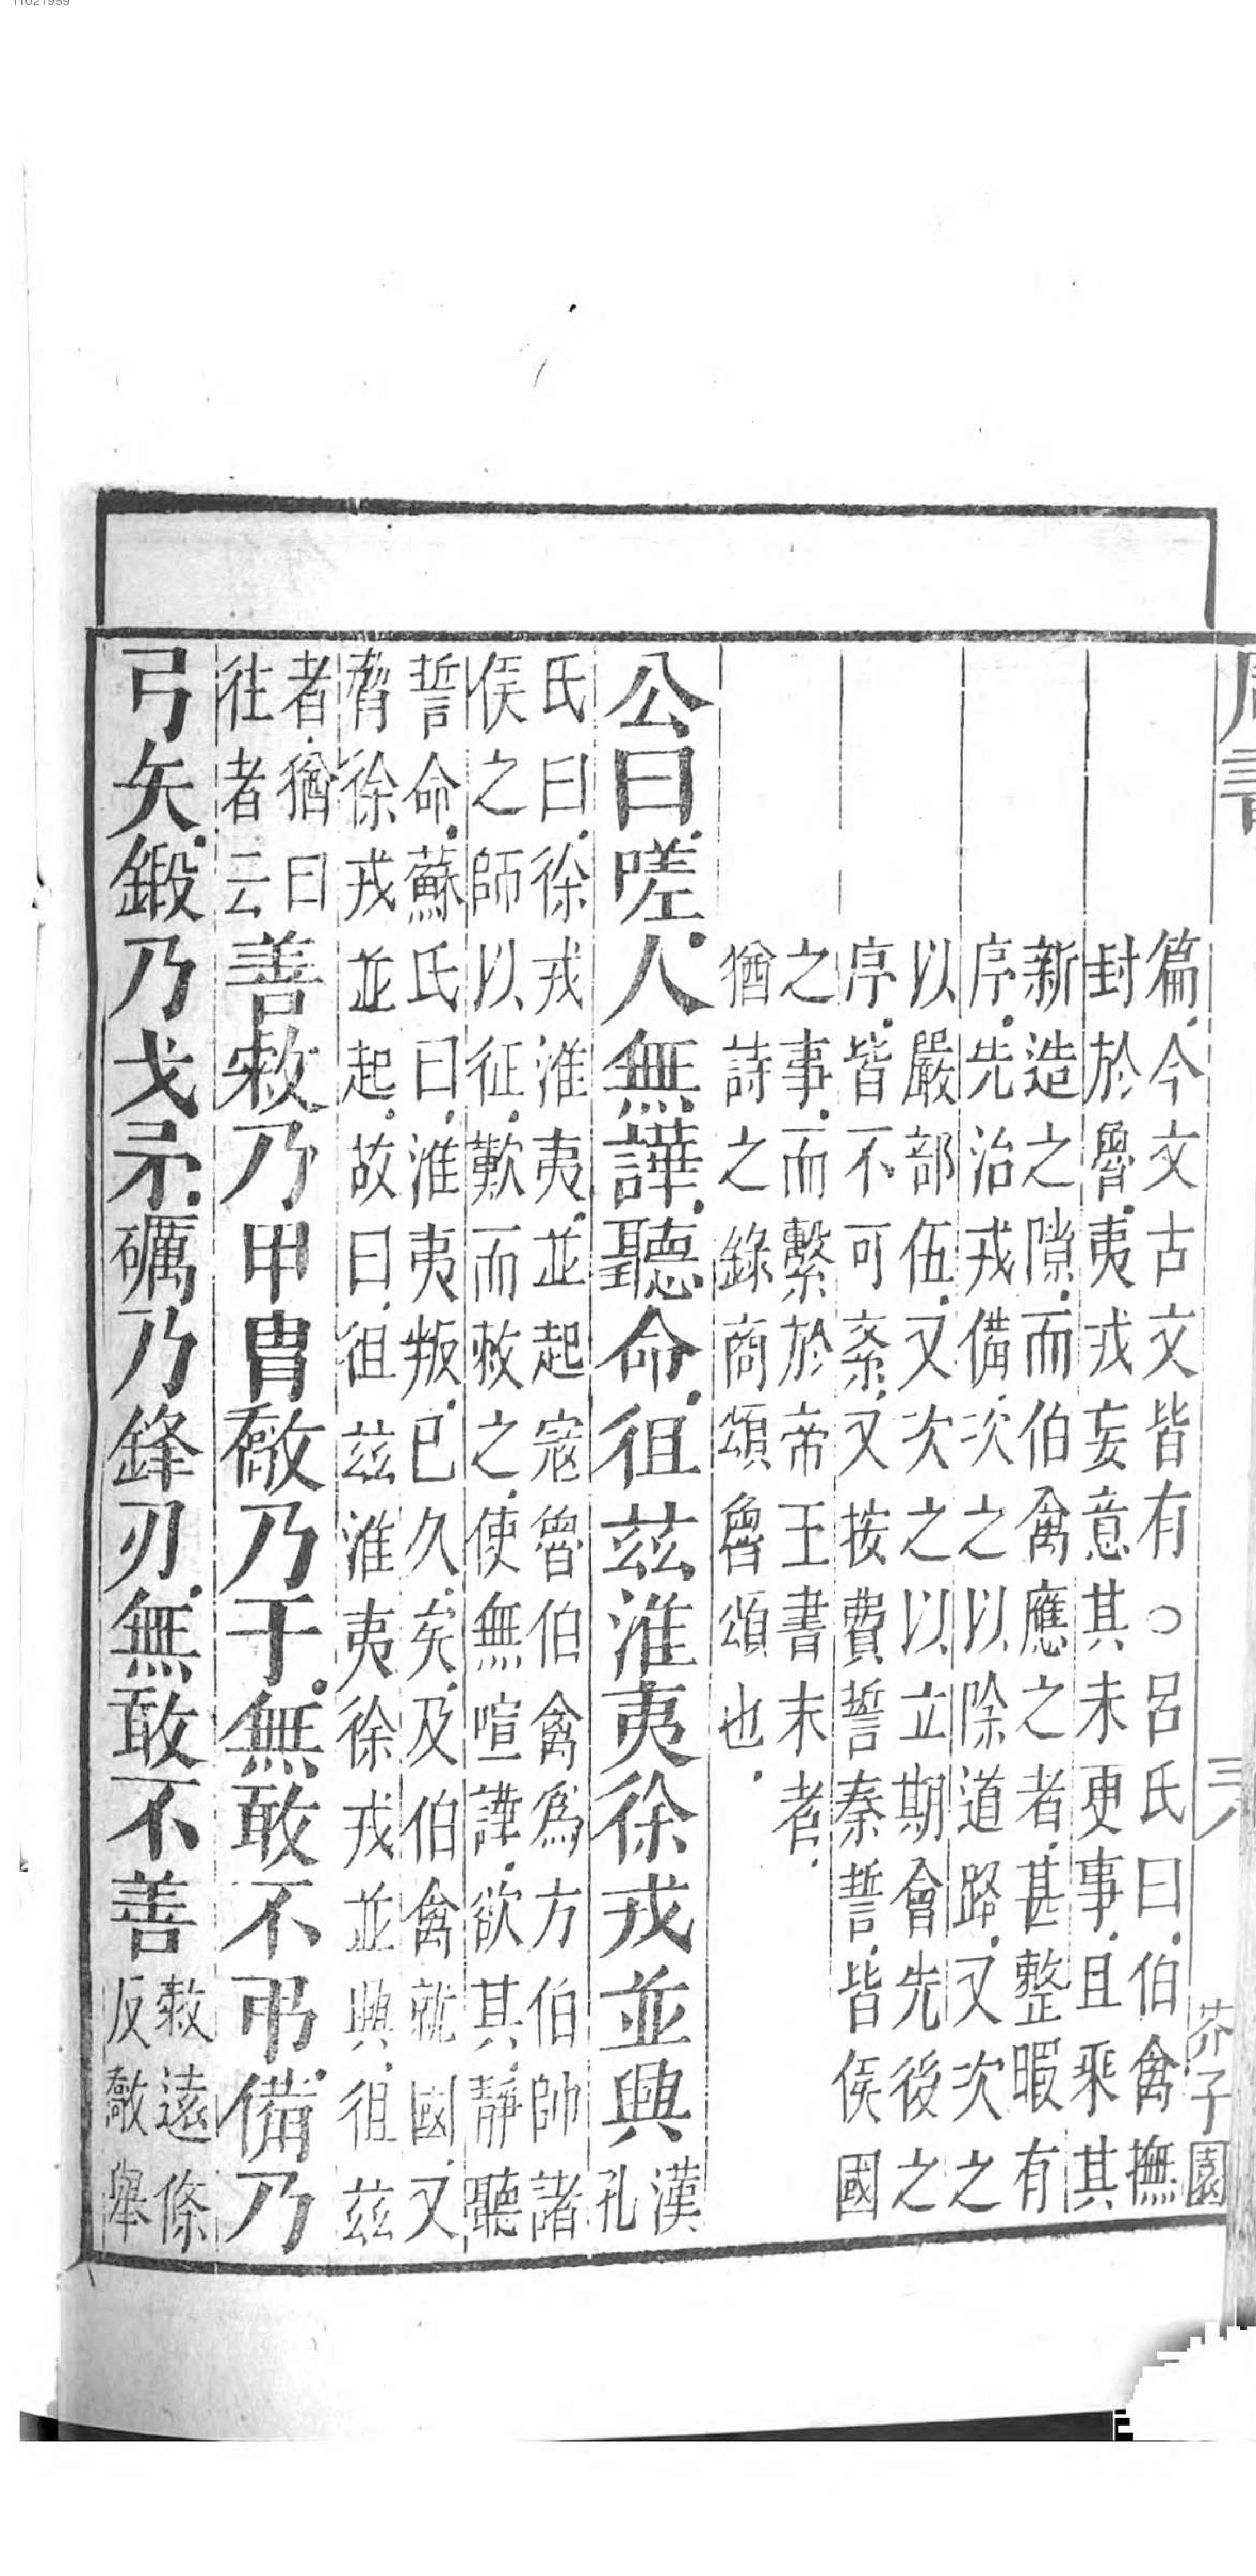 11021959
周書
三八
芥子園
篇.今文古文皆有○呂氏曰.伯禽撫
封於魯.夷戎妄意其未更事.且乘其
新造之隙.而伯禽應之者.甚整暇有
序.先治戎備.次之以除道路.又次之
以嚴部伍.又次之以立期會先後之
序.皆不可紊.又按費誓秦誓.皆侯國
之事.而繫於帝王書末者.
猶詩之錄商頌魯頌也.
公曰.嗟.人無譁.聽命.徂茲淮夷徐戎並興
漢
孔
氏曰.徐戎淮夷.並起寇魯伯禽爲方伯帥諸
侯之師以征.歎而敕之.使無喧譁.欲其靜聽
誓命.蘇氏曰.淮夷叛.已久.矣.及伯禽就國.又
脅徐戎並起.故曰.徂茲淮夷徐戎並興.徂茲
者.猶曰
往者云
善敹乃甲冑敿乃干.無敢不弔.備乃
弓矢.鍛乃戈矛.礪乃鋒刃.無敢不善
敹遠條
反敿舉